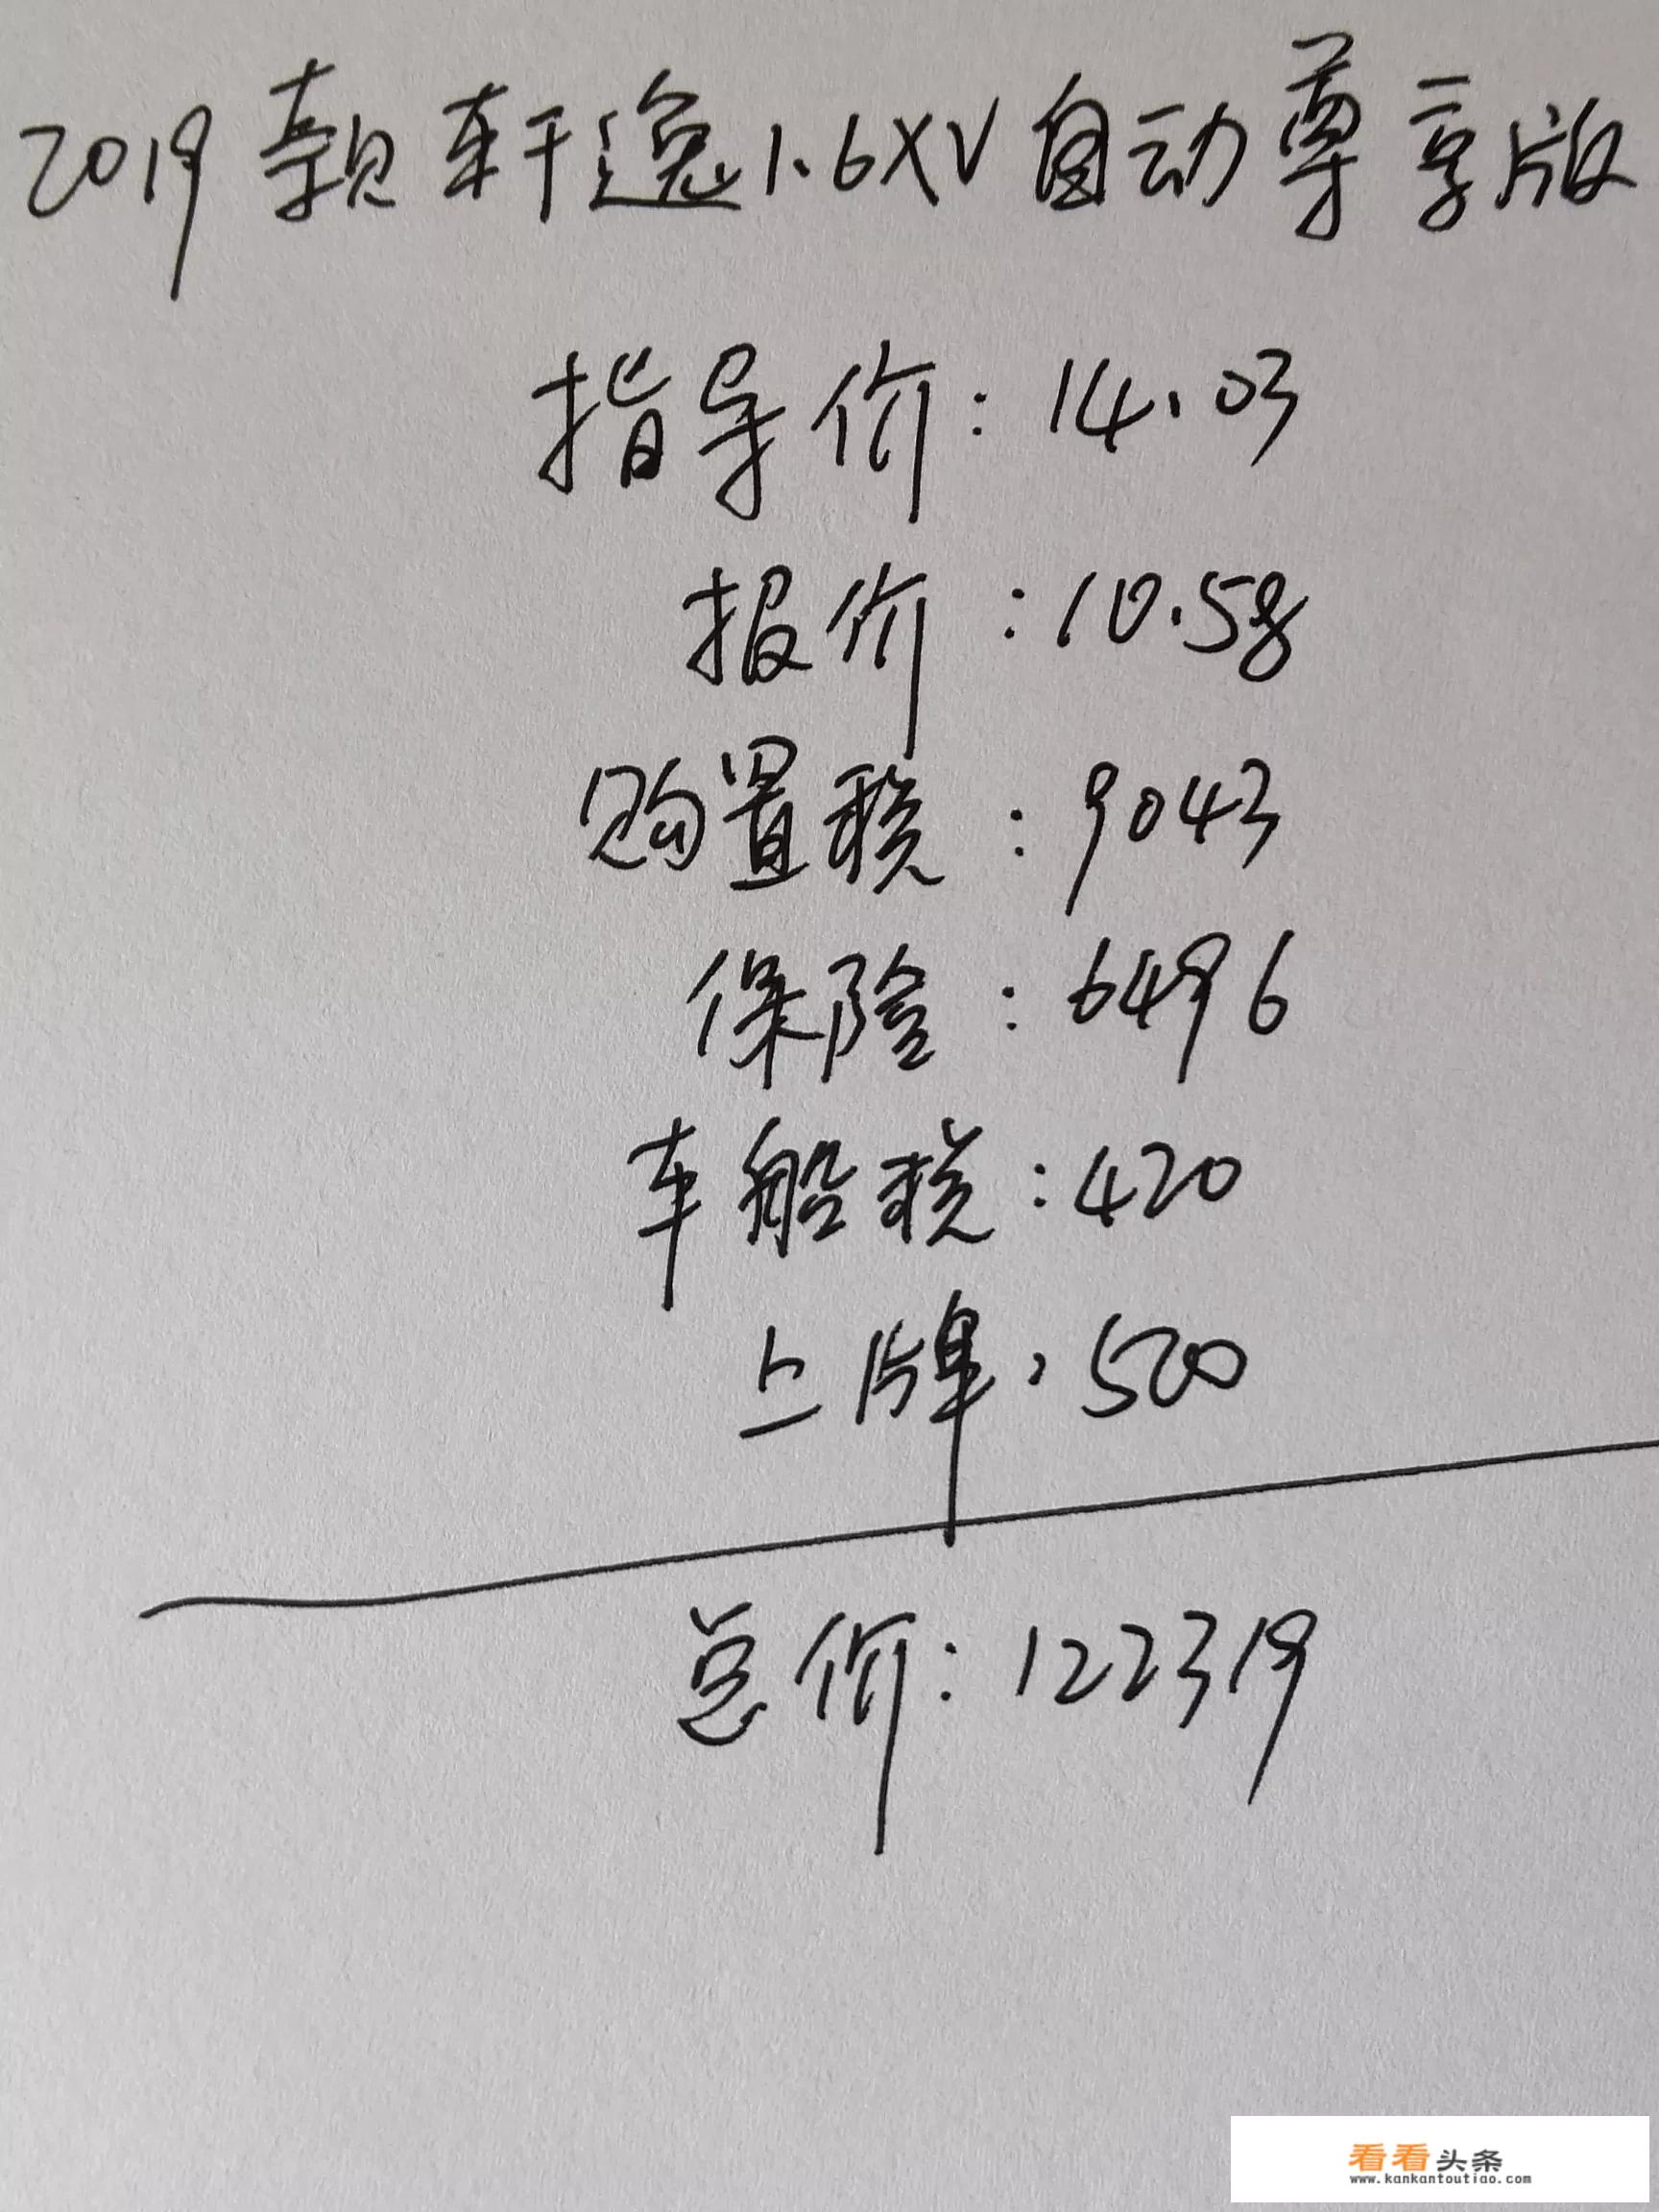 2019款轩逸1.6XV自动尊享版
指导价:14.03
报价:10.58
购置税:9043
保险:6496
车船税:420
上牌:500
总价:122319
看看头条
www.kankantoutiao.com